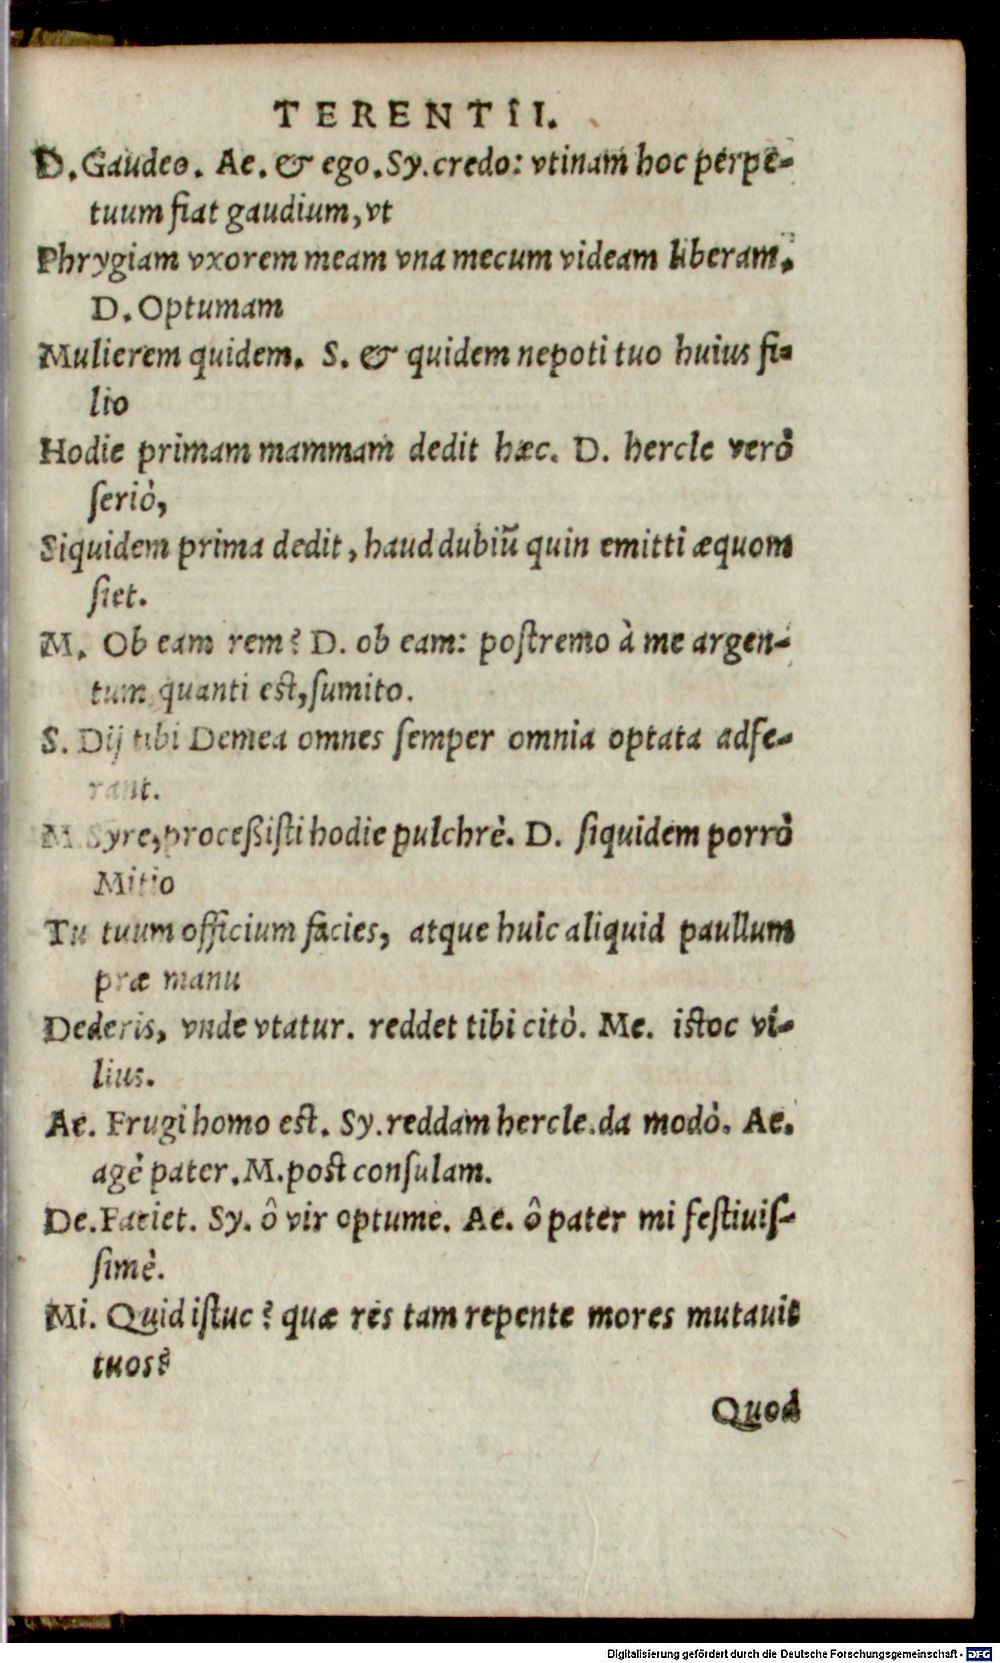 TERENTII.
D. Gaudeo. Ae. & ego. Sy. credo: vtinam hoc perpe-
tuum fiat gaudium, vt
Phrygiam vxorem meam vna mecum videam liberam.
D. Optumam
Mulierem quidem. S. & quidem nepoti tuo huius fi-
lio
Hodie primam mammam dedit hæc. D. hercle verò
ſeriò,
Siquidem prima dedit, haud dubiũ quin emitti æquom
ſiet.
M. Ob eam rem? D. ob eam: poſtremo à me argen-
tum quanti est, ſumito.
S. Dij tibi Demea omnes ſemper omnia optata adfe-
rant.
M. Syre, proceßiſti hodie pulchrè. D. ſiquidem porrò
Mitio
Tu tuum officium facies, atque huic aliquid paullum
præ manu
Dederis, vnde vtatur. reddet tibi citò. Me. istoc vi-
lius.
Ae. Frugi homo est. Sy. reddam hercle. da modò. Ae.
agè pater. M. post conſulam.
De. Faciet. Sy. ô vir optume. Ae. ô pater mi feſtiuiſ-
ſimè.
Mi. Quid iſtuc? quæ res tam repente mores mutauit
tuos?
Quod
Digitalisierung gefördert durch die Deutsche Forschungsgemeinschaft - DFG